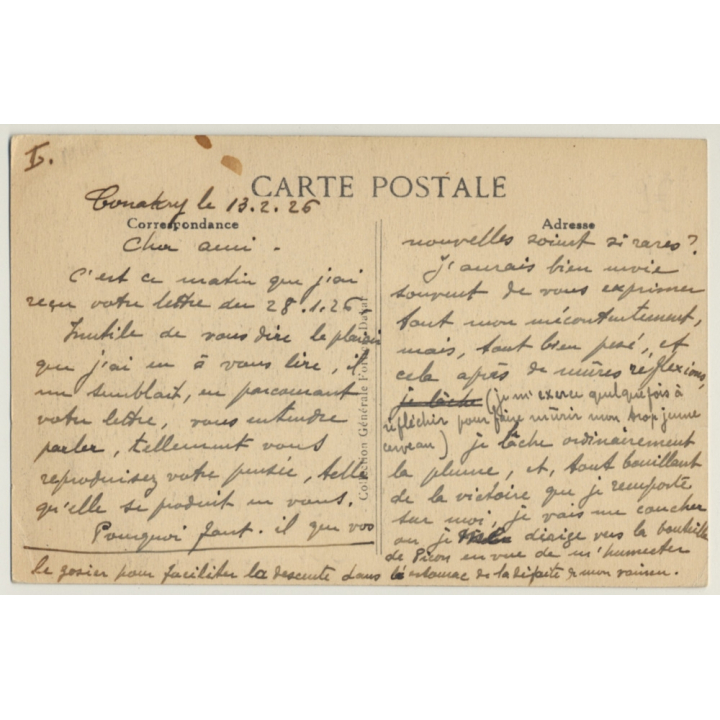 I.
CARTE POSTALE
Conakry le 13.2.26
Correspondance
Cher ami -
C'est ce matin que j'ai
reçu votre lettre du 28.1.26
Inutile de vous dire le plaisir
que j'ai eu à vous lire, il
me semblait, en parcourant
votre lettre, vous entendre
parler, tellement vous
reproduisez votre pensée, telle
qu'elle se produit en vous.
Pourquoi faut-il que vos
Collection Générale Fortier, Dakar
Adresse
nouvelles soient si rares?
J'aurais bien envie
souvent de vous exprimer
tout mon mécontentement,
mais, tout bien pesé, et
cela après de mûres réflexions,
je lâche (je m'exerce quelquefois à
réfléchir pour faire mûrir mon trop jeune
cerveau) je lâche ordinairement
la plume, et, tout bouillant
de la victoire que je remporte
sur moi, je vais me coucher
ou je dirige vers la bouteille
de Picon en vue de m'humecter
le gosier pour faciliter la descente dans l'estomac de la défaite de mon voisin.